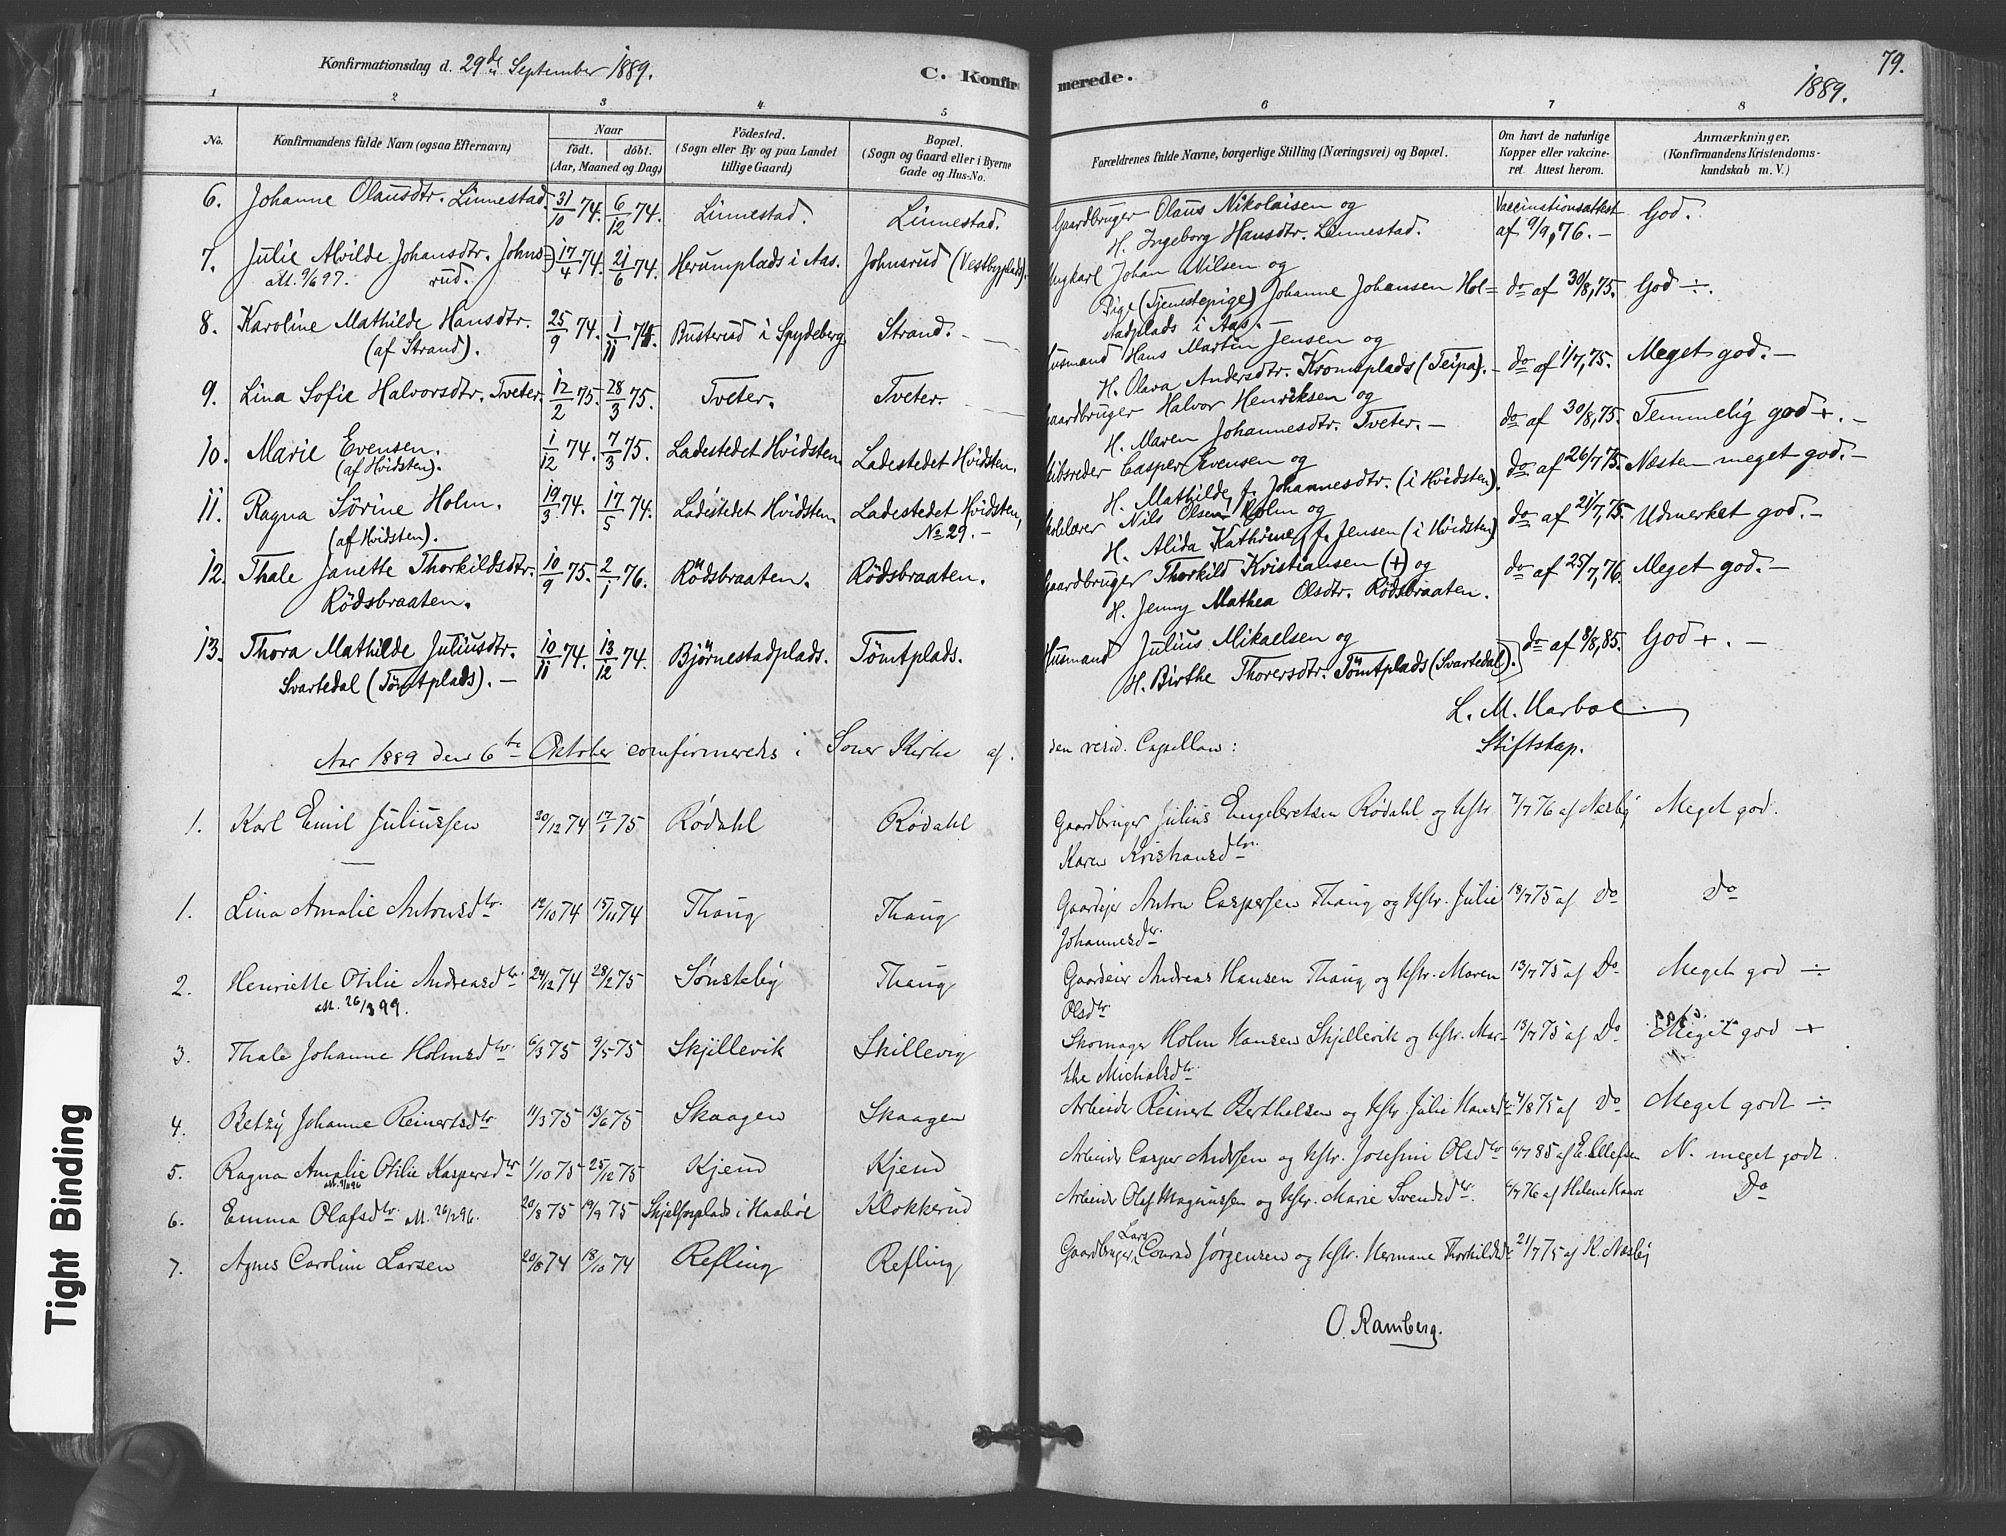 Konfirmationsdag d. 29de September 1889.
C. Konfirmerede.
1889.
79.
1 2 3 4 5 6 7 8
No.
Konfirmandens fulde Navn (ogsaa Efternavn)
Naar
födt. döbt.
(Aar, Maaned og Dag)
Födested.
(Sogn eller By og paa Landet
tillige Gaard)
Bopæl.
(Sogn og Gaard eller i Byerne
Gade og Hus-No.
Forældrenes fulde Navne, borgerlige Stilling (Næringsvei) og Bopæl.
Om havt de naturlige
Kopper eller vakcine-
ret. Attest herom.
Anmærkninger.
(Konfirmandens Kristendoms-
kundskab m. V.)
6. Johanne Olausdtr. Linnestad. 31/10 74. 6/12 74. Linnestad. Linnestad. Gaardbruger Olaus Nikolaisen og Vaccinationsattest God.
H. Ingeborg Hansdtr. Linnestad. af 9/9, 76. -
7. Julie Alvilde Johansdtr. Johns= 17/4 74. 21/6 74. Herumplads i Aas. Johnsrud (Vestbyplads). Ungkarl Johan Nilsen og do af 30/8, 75. God ÷.
att. 9/6 97. rud. Pige (Tjenestepige) Johanne Johansen Hol=
stadplads i Aas. -
8. Karoline Mathilde Hansdtr. 25/9 74. 1/11 74. Busterud i Spydeberg. Strand. - Husmand Hans Martin Jensen og do af 1/7, 75. Meget god. -
(af Strand). H. Olava Andersdtr. Kromsplads (Teipa). -
9. Lina Sofie Halvorsdtr. Tveter. 12/2 75. 28/3 75. Tveter. Tveter. Gaardbruger Halvor Henriksen og do af 30/8, 75. Temmelig god +. -
H. Maren Johannesdtr. Tveter. -
10. Marie Evensen. 1/12 74. 7/3 75. Ladestedet Hvidsten. Ladestedet Hvidsten. Skibsreder Casper Evensen og do af 26/7 75. Næsten meget god. -
(af Hvidsten). H. Mathilde, f. Johannesdtr. (i Hvidsten).
11. Ragna Sörine Holm. 19/3 74. 17/5 74. Ladestedet Hvidsten. Ladestedet Hvidsten, Skolelærer Nils Olsen Holm og do af 21/7, 75. Udmerket god. -
(af Hvidsten). No 29. - H. Alida Kathrine, f. Jensen (i Hvidsten)
12. Thale Janette Thorkildsdtr. 10/9 75. 2/1 76. Rödsbraaten. Rödsbraaten. Gaardbruger Thorkild Kristiansen (+) og do af 25/7, 76. Meget god. -
Rödsbraaten. H. Jenny Mathea Olsdtr. Rødsbraaten.
13. Thora Mathilde Juliusdtr. 10/11 74. 13/12 74. Bjørnestadplads. Tömtplads. Husmand Julius Mikaelsen og do af 8/8, 85. God +. -
Svartedal (Tömtplads). - H. Birthe Thorersdtr. Tömtplads (Svartedal).
L. M. Harboe
Stiftskap.
Aar 1889 den 6te Oktober comfirmeredes i Soner Kirke af den resid. Capellan:
1. Karl Emil Juliussen 20/12 74 17/1 75 Rödahl Rødahl Gaardbruger Julius Engebretsen Rødahl og Hstr 7/7 76 af Næsby Meget god.
Karen Kristiansdtr.
1. Lina Amalie Antonsdtr. 12/10 74 15/11 74 Thaug Thaug Gaardejer Anton Caspersen Thaug og Hstr. Julie 18/7 75 af Do Do
Johannesdtr.
2. Henriette Otilie Andreasdtr. 24/12 74 28/2 75 Sønsteby Thaug Gaardeier Andreas Hansen Thaug og Hstr. Maren 13/7 75 af Do Meget god ÷
att. 26/3 99. Olsdtr
3. Thale Johanne Holmsdtr. 6/3 75 9/5 75 Skjillevik Skillevig Skomager Holm Hansen Skjillevik og Hstr. Mar- 13/7 75 af Do Meget god +
the Michalsdtr.
4. Betzy Johanne Reinertsdtr 11/3 75 13/6 75 Skaagen Skaagen Arbeider Reinert Berthelsen og Hstr Julie Hansdtr 4/8 75 af Do Meget godt ÷
5. Ragna Amalie Otilie Kaspersdtr 1/10 75 25/12 75 Kjend Kjend Arbeider Casper Andersen og Hstr. Josefine Olsdtr 6/7 85 af E. Ellefsen N. meget godt.
6. Emma Olafsdtr. att. 26/2 96. 20/8 75 19/9 75 Skjelfosplads i Haabøl Klokkerud Arbeider Olaf Magnussen og Hstr. Marie Svendsdtr. 6/7 76 af Helene Do
7. Agnes Caroline Larsen 20/8 74 18/10 74 Refling Refling Gaardbruger, Lars Conrad Jørgensen og Hstr. Hermane Thorkildsdtr 21/7 75 af K. Næsby
O. Ramberg.
Tight Binding